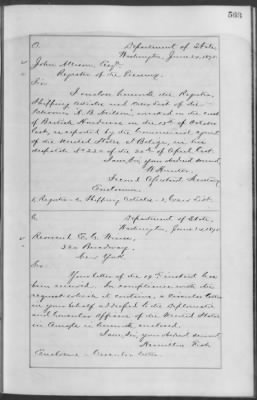 563
Department of State,
Washington, June 14, 1870.
John Allison, Esqr.
Register of the Treasury.
Sir
I enclose herewith the Register,
Shipping Articles and Crew list of the
Schooner A. B.
of British Honduras on the 15th of October
last, as reported by the Commercial Agent
of the United States at Belize, in his
despatch No. 222 of the 20th of April last.
I am, Sir, your obedient servant,
W. Hunter,
Second Assistant Secretary
Enclosures.
1, Register - 2, Shipping Articles - 3, Crew List.
Department of State,
Washington, June 14, 1870
Reverend E. C. Wines,
320 Broadway,
New York.
Sir:
Your letter of the 19th instant has
been received. In compliance with the
request which it contains, a Circular letter
in your behalf addressed to the Diplomatic
and Consular officers of the United States
in Europe is herewith enclosed.
I am, Sir, your obedient servant,
Hamilton Fish
Enclosure - Circular letter.